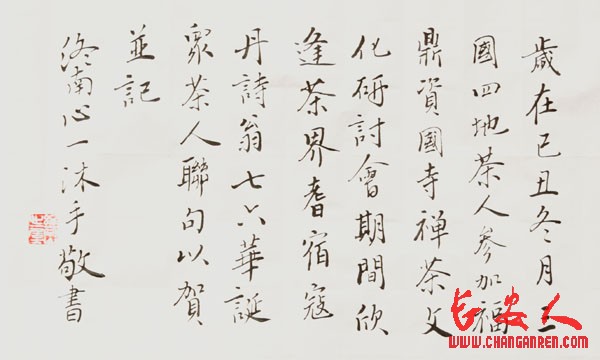 歲在己丑冬月三
國四地茶人參加福
鼎資國寺禅茶文
化研討會期間欣
逢茶界耆宿寇
丹詩翁七六華誕
眾茶人聯句以賀
並記
終南心一沐手敬書
长安人
WWW.CHANGANREN.COM